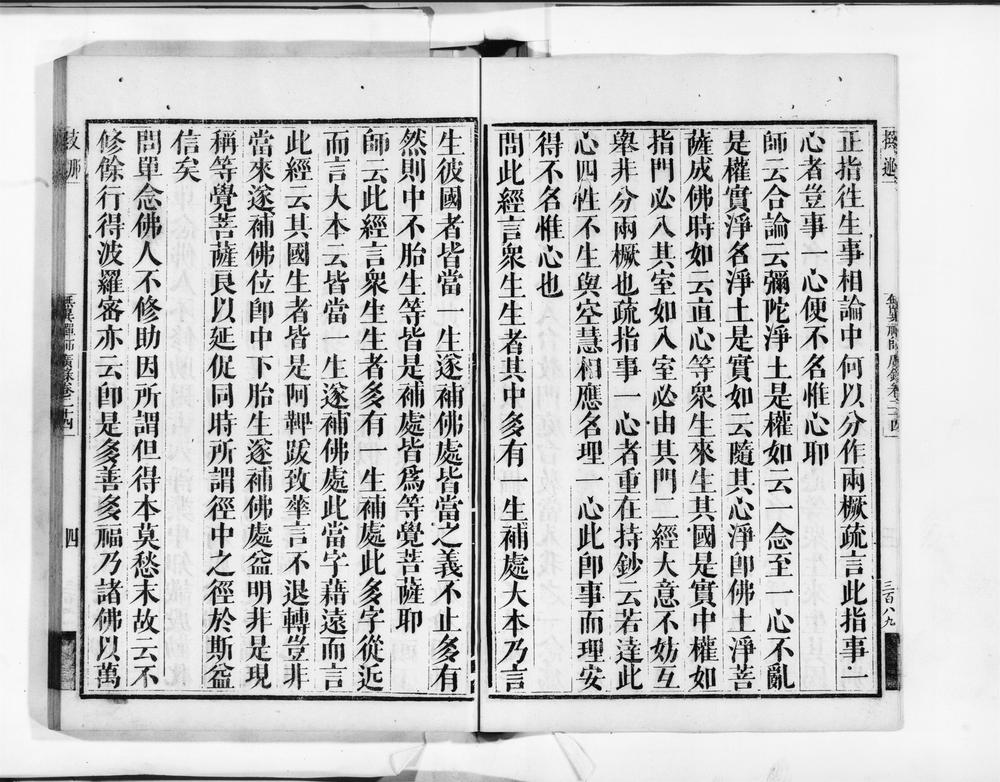 正指徃生事相論中何以分作兩橛疏言此指事一
心者豈事一心便不名惟心耶
師云合論云彌陀淨土是權如云一念至一心不亂
是權實淨名淨土是實如云隨其心淨卽佛土淨菩
薩成佛時如云直心等衆生來生其國是實中權如
指門必入其室如入室必由其門一經大意不妨互
舉非分兩橛也疏指事一心者重在持鈔云若達此
心四性不生與空慧相應名理一心此卽事而理安
得不名惟心也
問此經言衆生生者其中多有一生補處大本乃言
生彼國者皆當一生遂補佛處皆當之義不止多有
然則中不胎生等皆是補處皆爲等覺菩薩耶
師云此經言衆生生者多有一生補處此多字從近
而言大本云皆當一生遂補佛處此當字藉遠而言
此經云其國生者皆是阿鞞跋致華言不退轉豈非
當來遂補佛位卽中下胎生遂補佛處益明非是現
稱等覺菩薩良以延促同時所謂徑中之徑於斯益
信矣
問單念佛人不修助因所謂但得本莫愁末故云不
修餘行得波羅審亦云卽是多善多福乃諸佛以萬
無異禪師廣錄卷二十四
四
三百八九
支那
撰述